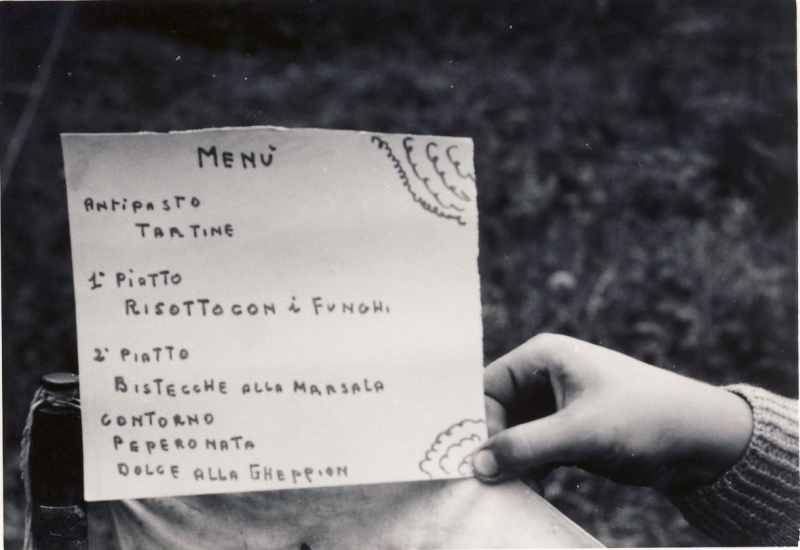 MENÙ
ANTIPASTO
TARTINE
1° PIATTO
RISOTTO CON i FUNGHI
2° PIATTO
BISTECCHE ALLA MARSALA
CONTORNO
PEPERONATA
DOLCE ALLA GHEPPION